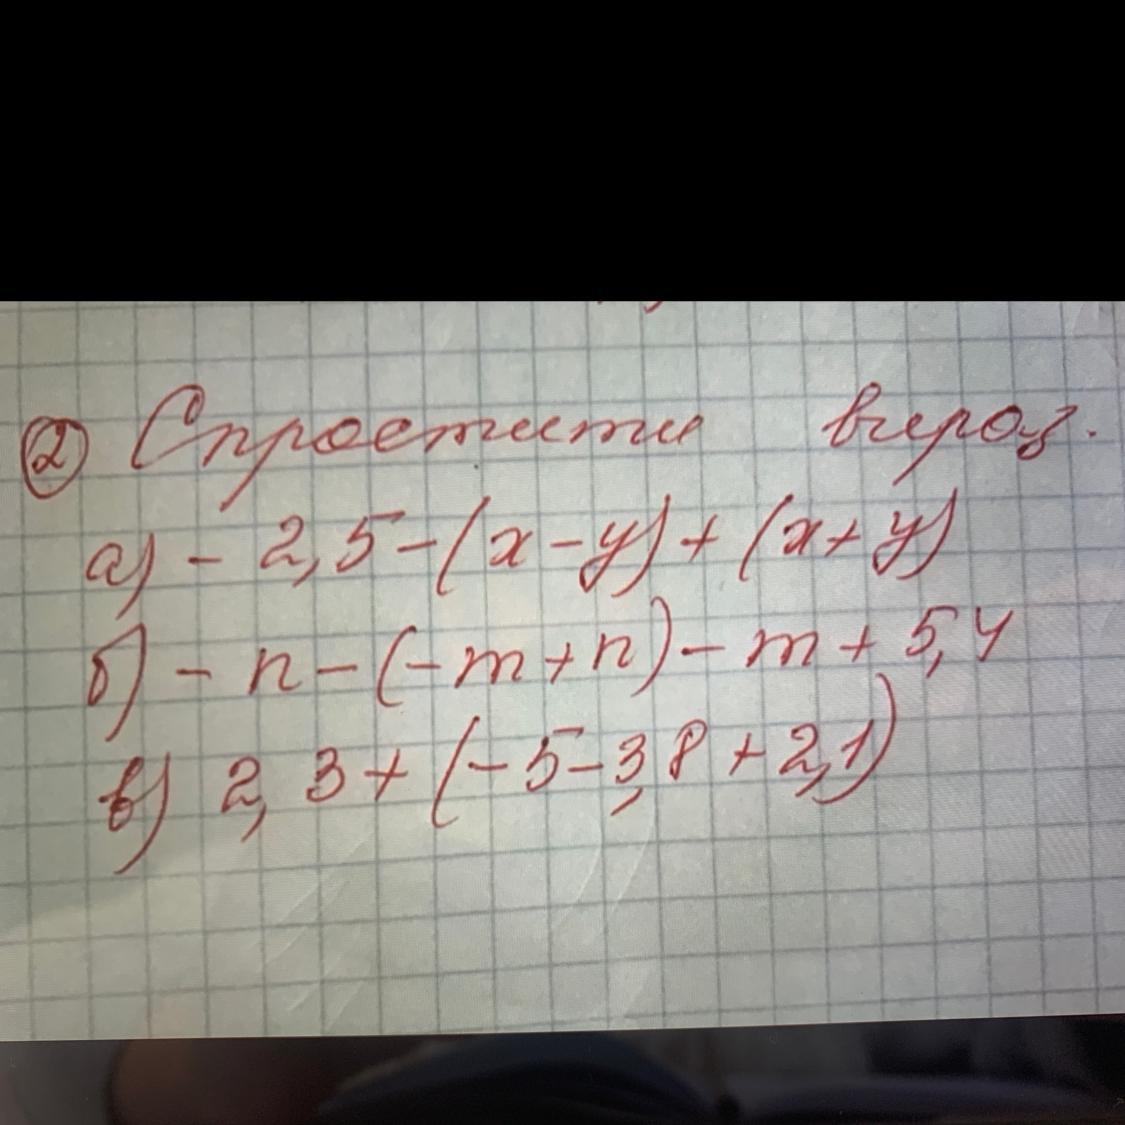 ② Спростити вираз.
а) - 2,5 - (x - y) + (x + y)
б) - n - (- m + n) - m + 5,4
в) 2,3 + (- 5 - 3,8 + 2,1)